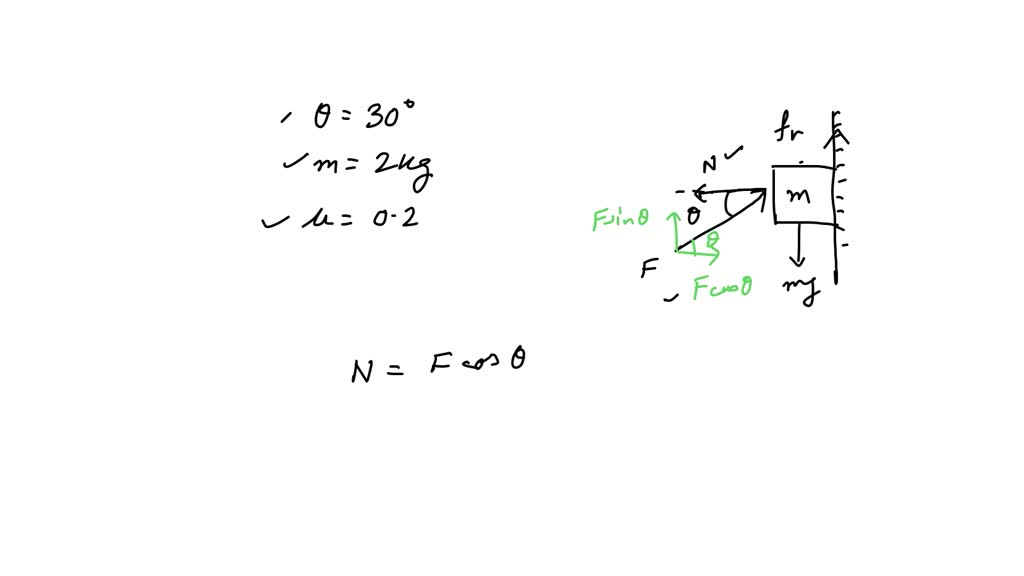 θ = 30°
m = 2kg
μ = 0.2
fr
N
m
F sinθ
θ
θ
F
F cosθ
mg
N = F cos θ